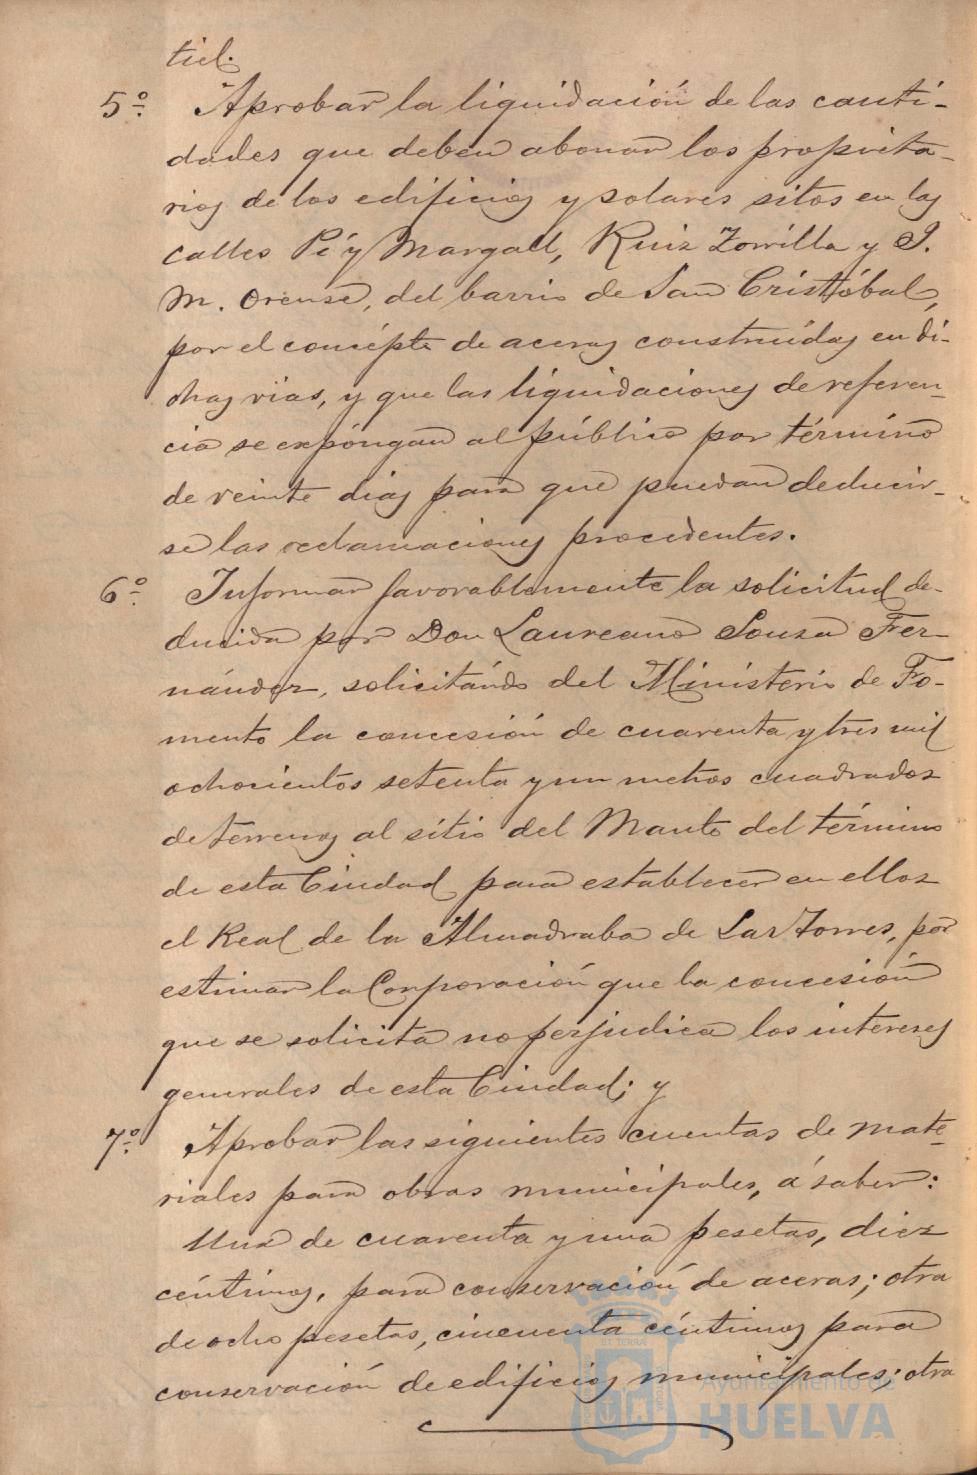 tiel.
5º. Aprobar la liquidación de las canti-
dades que deben abonar los propieta-
rios de los edificios y solares sitos en las
calles Pí y Margall, Ruiz Zorrilla y J.
M. Orense, del barrio de San Cristóbal,
por el concépto de aceras construídas en di-
chas vias, y que las liquidaciones de referen-
cia se expóngan al público por término
de veinte dias para que puedan deducir-
se las reclamaciones procedentes.
6º. Informar favorablemente la solicitud de-
ducida por Don Laureano Souza Fer-
nández, solicitándo del Ministerio de Fo-
mento la concesión de cuarenta y tres mil
ochocientos setenta y un metros cuadrados
de terrenos al sitio del Manto del término
de esta Ciudad para establecer en ellos
el Real de la Almadraba de Las Torres, por
estimar la Corporación que la concesión
que se solicita no perjudica los intereses
generales de esta Ciudad; y
7º. Aprobar las siguientes cuentas de mate-
riales para obras municipales, á saber:
Una de cuarenta y una pesetas, diez
céntimos, para conservación de aceras; otra
de ocho pesetas, cincuenta céntimos para
conservación de edificios municipales; otra
Ayuntamiento de
HUELVA